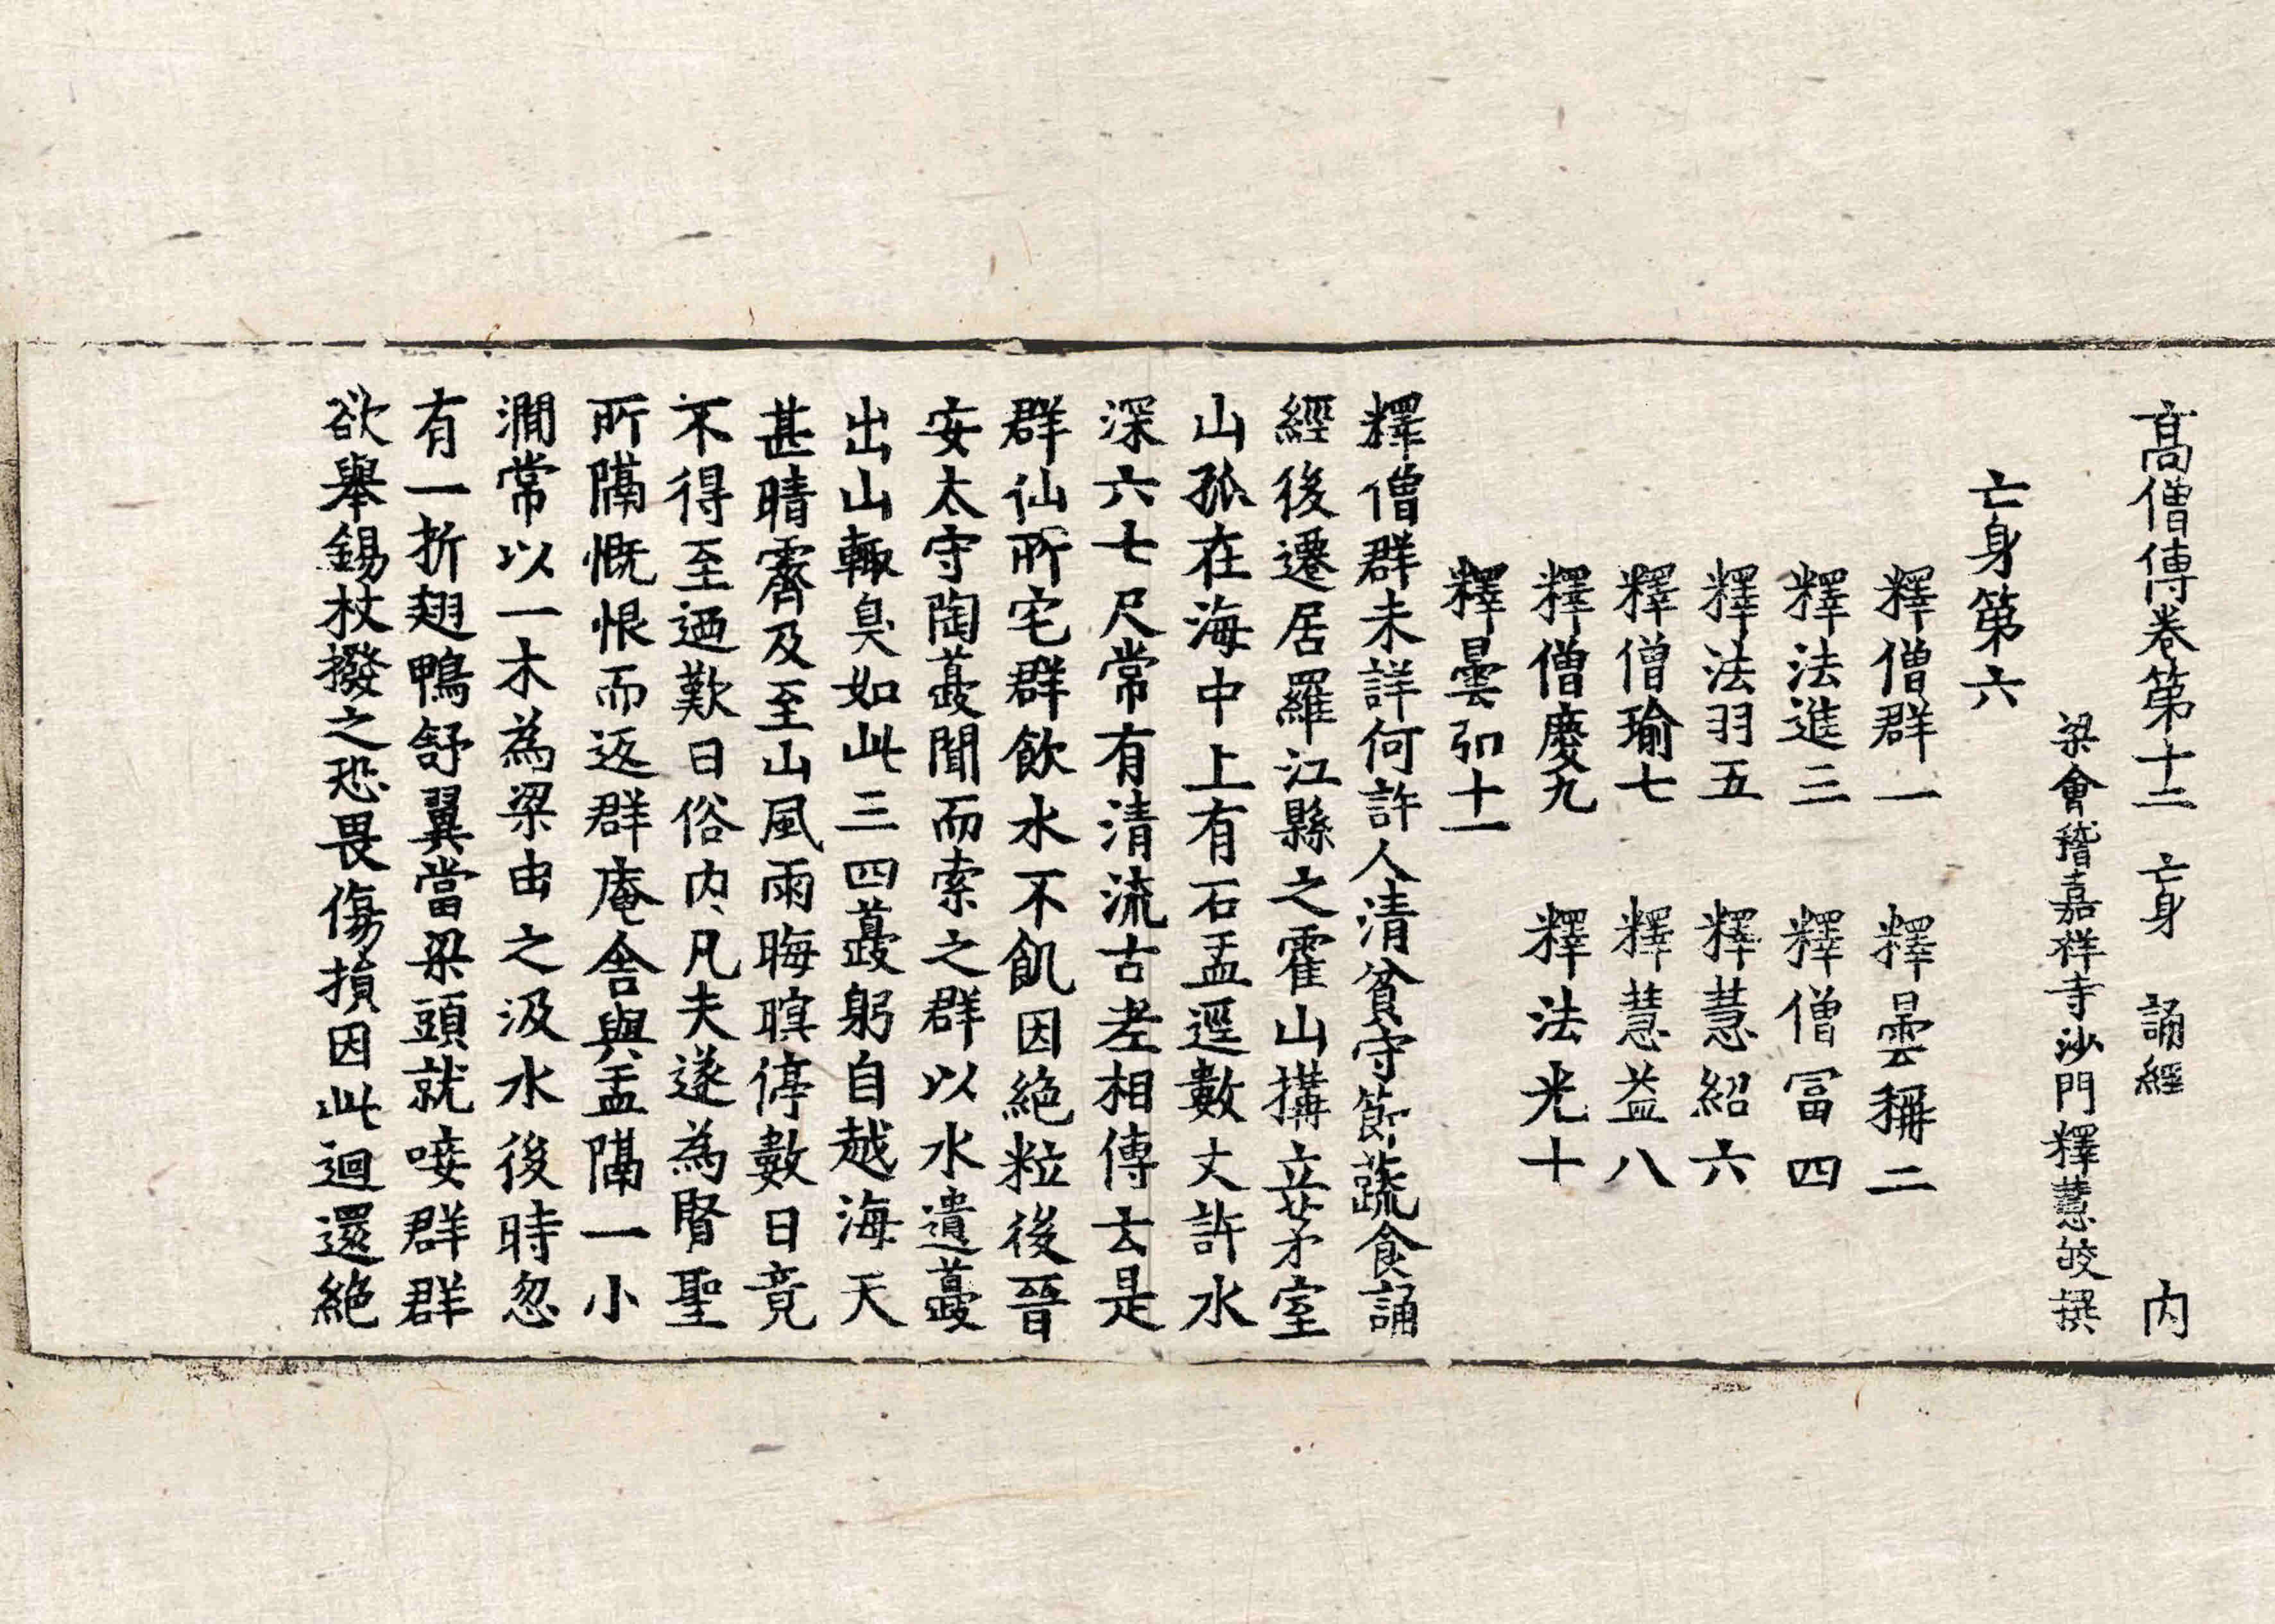 高僧傳卷第十二 亡身 誦經 内
梁會稽嘉祥寺沙門釋慧皎撰
亡身第六
釋僧群一 釋曇稱二
釋法進三 釋僧冨四
釋法羽五 釋慧紹六
釋僧瑜七 釋慧益八
釋僧慶九 釋法光十
釋曇弘十一
釋僧群未詳何許人清貧守節蔬食誦
經後遷居羅江縣之霍山搆立茅室
山孤在海中上有石盂逕數丈許水
深六七尺常有清流古老相傳云是
群仙所宅群飲水不飢因絶粒後晉
安太守陶夔聞而索之群以水遺夔
出山輙臭如此三四夔躬自越海天
甚晴霽及至山風雨晦暝停數日竟
不得至迺歎曰俗内凡夫遂為賢聖
所隔慨恨而返群庵舍與盂隔一小
澗常以一木為梁由之汲水後時忽
有一折翅鴨舒翼當梁頭就唼群群
欲舉錫杖撥之恐畏傷損因此迴還絶